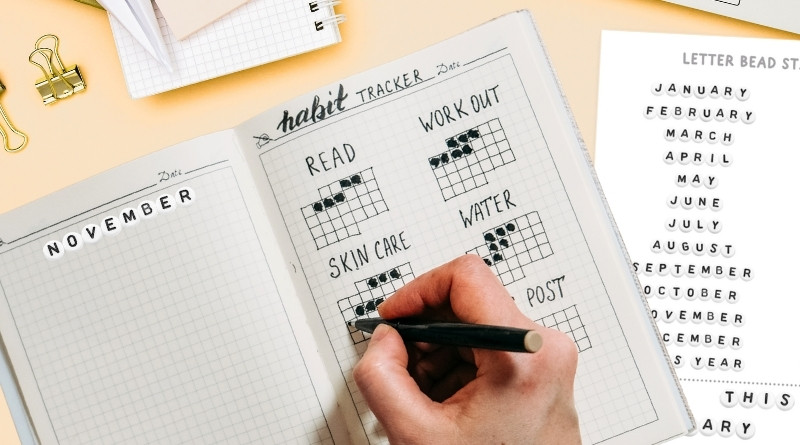 Date
NOVEMBER
habit TRACKER Date
READ
WORK OUT
SKIN CARE
WATER
POST
LETTER BEAD ST
JANUARY
FEBRUARY
MARCH
APRIL
MAY
JUNE
JULY
AUGUST
SEPTEMBER
OCTOBER
OVEMBER
CEMBER
S YEAR
THIS
ARY